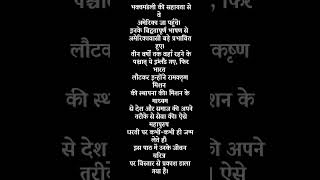 भक्तमंडली की सहायता से
वे
अमेरिका जा पहुँचे।
इनके विद्वतापूर्ण भाषण से
अमेरिकावासी बड़े प्रभावित
हुए।
तीन वर्षों तक वहाँ रहने के
पश्चात् ये इंग्लैंड गए, फिर
भारत
लौटकर इन्होंने रामकृष्ण
मिशन
की स्थापना की। मिशन के
माध्यम
से देश और समाज की अपने
तरीके से सेवा की। ऐसे
महापुरुष
धरती पर कभी-कभी ही जन्म
लेते हैं।
इस पाठ में उनके जीवन
चरित्र
पर विस्तार से प्रकाश डाला
गया है।